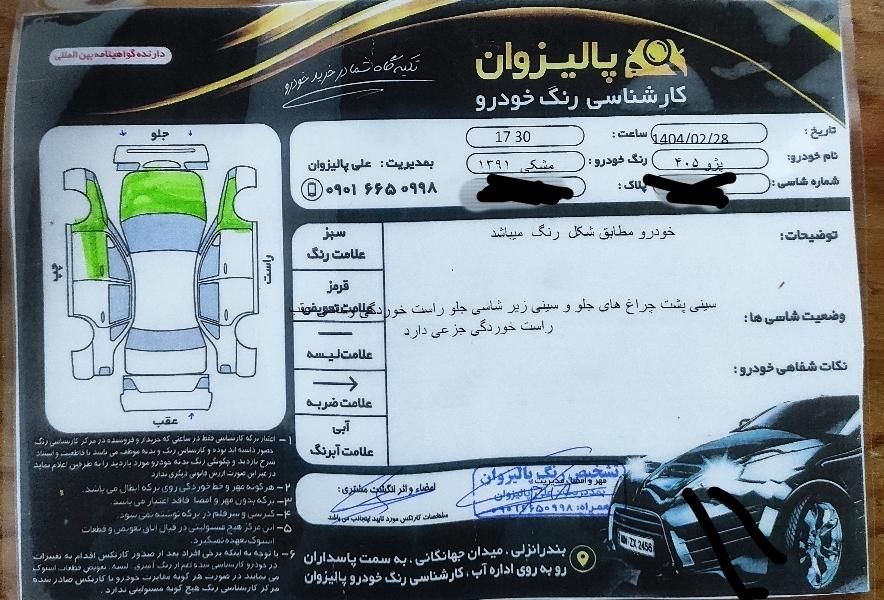 دارنده گواهینامه بین المللی
پالیزوان
تکیه گاه شما در خرید خودرو
کارشناسی رنگ خودرو
تاریخ : 1404/02/28 ساعت : 17 30
نام خودرو: پژو ۴۰۵ رنگ خودرو : مشکی ۱۳۹۱
شماره شاسی : پلاک :
بمدیریت : علی پالیزوان
۰۹۰۱ ۶۶۵ ۰۹۹۸
جلو
چپ
راست
عقب
سبز
علامت رنگ
قرمز
علامت تعویض
علامت لیسه
علامت ضربه
آبی
علامت آبرنگ
توضیحات: خودرو مطابق شکل رنگ میباشد
وضعیت شاسی ها : سینی پشت چراغ های جلو و سینی زیر شاسی جلو راست خوردگی
راست خوردگی جزعی دارد
نکات شفاهی خودرو :
۱- اعتبار برگه کارشناسی فقط در ساعتی که خریدار و فروشنده در مرکز کارشناسی رنگ
حضور داشته اند بوده و کارشناس رنگ و بدنه موظف می باشد با قاطعیت و استناد
شرح بازدید و چگونگی رنگ بدنه خودرو مورد بازدید را به طرفین اعلام نماید
در غیر این صورت ارزش قانونی دیگری ندارد
۲- هرگونه مهر و خط خوردگی روی برگه ابطال می باشد.
۳- برگه بدون مهر و امضا فاقد اعتبار می باشد.
۴- گیرسی و سرقلم در برگه نوشته نمی شود
۵- این مرکز هیچ مسئولیتی در قبال اتاق تعویض و قطعات
استوک بعهده نمیگیرد.
۶- با توجه به اینکه برخی افراد بعد از صدور کارتکس اقدام به تغییرات
در خودرو کارشناسی شده اعم از رنگ آمیزی، لیسه، تعویض قطعات استوک
می نمایند در صورت هر گونه مغایرت خودرو با کارتکس صادر شده
مرکز کارشناسی رنگ هیچ گونه مسئولیتی ندارد.
امضاء و اثر انگشت مشتری :
مشخصات کارتکس مورد تایید اینجانب می باشد
مهر و امضا مدیریت
تشخیص رنگ پالیزوان
همراه: ۰۹۰۱۶۶۵۰۹۹۸
بندرانزلی ، میدان جهانگانی ، به سمت پاسداران
رو به روی اداره آب ، کارشناسی رنگ خودرو پالیزوان
ZX 2456